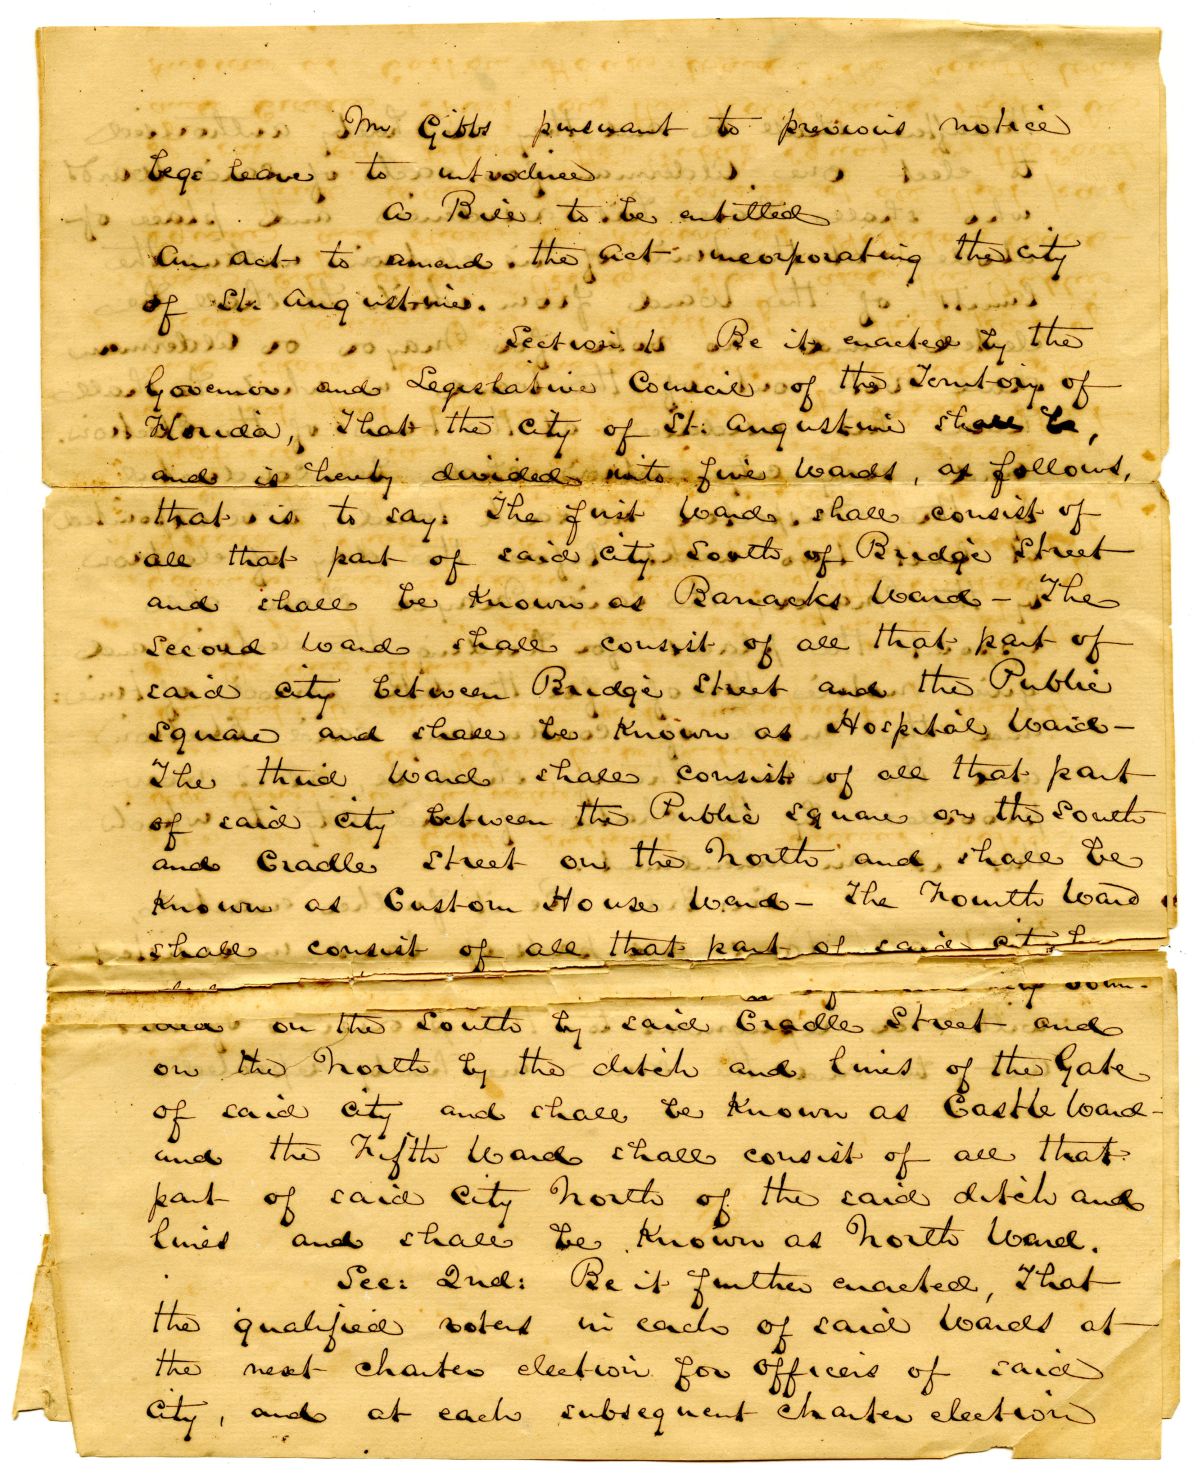 Mr Gibbs pursuant to previous notice
begs leave to introduce
A Bill to be entitled
An act to amend the act incorporating the city
of St. Augustine.
Section 1. Be it enacted by the
Governor and Legislative Council of the Territory of
Florida, That the city of St. Augustine shall be,
and is hereby divided into five wards, as follows,
that is to say: The first Ward shall consist of
all that part of said city South of Bridge Street
and shall be Known as Barracks Ward – The
Second Ward shall consist of all that part of
said city between Bridge Street and the Public
Square and shall be Known as Hospital Ward –
The third Ward shall consist of all that part
of said city between the Public Square on the South
and Cradle Street on the North and shall be
Known as Custom House Ward – The Fourth Ward
shall consist of all that part of said city
on the South by said Cradle Street and
on the North by the ditch and lines of the Gate
of said city and shall be Known as Castle Ward –
and the Fifth Ward shall consist of all that
part of said city North of the said ditch and
lines and shall be Known as North Ward.
Sec: 2nd: Be it further enacted, That
the qualified voters in each of said Wards at
the next charter election for officers of said
city, and at each subsequent charter election